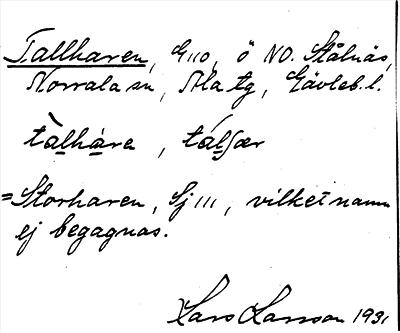 Tallharen, G110, ö NO. Stålnäs,
Norrala sn, Ala tg, Gävleb. l.
tàlhàra, tálʃær
=Storharen, Sj 111, vilket namn
ej begagnas.
Lars Larsson 1931